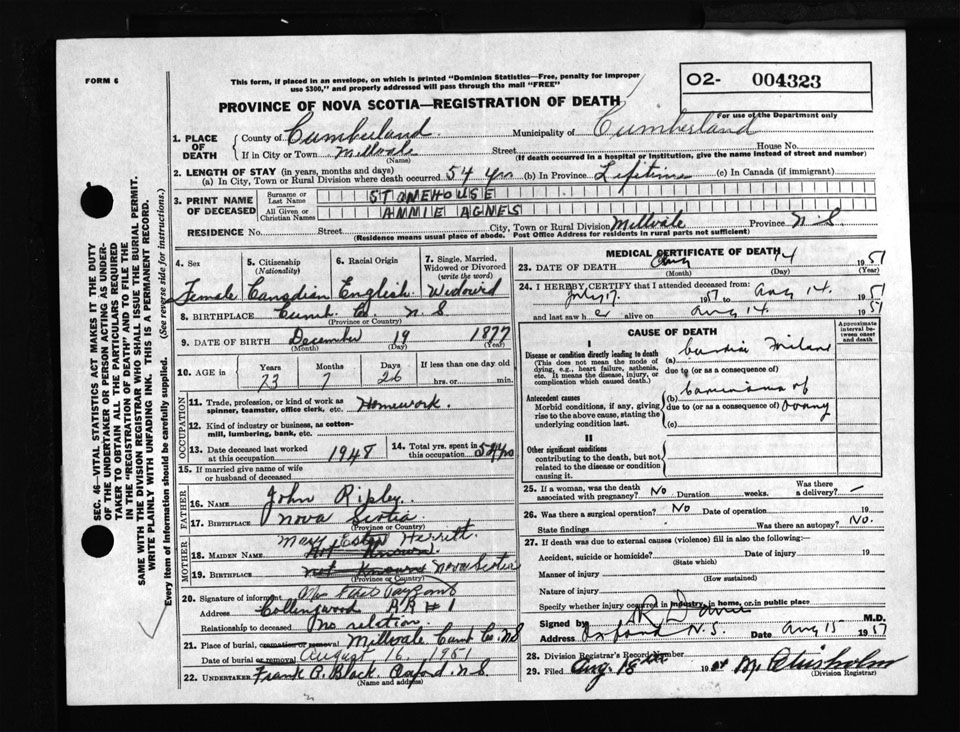 FORM 6
This form, if placed in an envelope, on which is printed "Dominion Statistics—Free, penalty for improper
use $300," and properly addressed will pass through the mail "FREE"
O2- 004323
For use of the Department only
PROVINCE OF NOVA SCOTIA—REGISTRATION OF DEATH
1. PLACE OF DEATH
County of Cumberland Municipality of Cumberland
If in City or Town Millvale Street House No.
(Name) (If death occurred in a hospital or institution, give the name instead of street and number)
2. LENGTH OF STAY (in years, months and days)
(a) In City, Town or Rural Division where death occurred 54 yrs (b) In Province Lifetime (c) In Canada (if immigrant)
3. PRINT NAME OF DECEASED
Surname or Last Name STONEHOUSE
All Given or Christian Names ANNIE AGNES
RESIDENCE No. Street City, Town or Rural Division Millvale Province N S
(Residence means usual place of abode. Post Office Address for residents in rural parts not sufficient)
4. Sex
Female
5. Citizenship (Nationality)
Canadian
6. Racial Origin
English
7. Single, Married, Widowed or Divorced (write the word)
Widowed
8. BIRTHPLACE Cumb. Co. N S
(Province or Country)
9. DATE OF BIRTH December 19 1877
(Month) (Day) (Year)
10. AGE in Years Months Days If less than one day old
73 7 26 hrs. or min.
OCCUPATION
11. Trade, profession, or kind of work as
spinner, teamster, office clerk, etc. Homework.
12. Kind of industry or business, as cotton-
mill, lumbering, bank, etc.
13. Date deceased last worked at this occupation 1948
14. Total yrs. spent in this occupation 52 yrs
15. If married give name of wife
or husband of deceased
FATHER
16. NAME John Ripley
17. BIRTHPLACE Nova Scotia
(Province or Country)
MOTHER
Mary
18. MAIDEN NAME Not Known
19. BIRTHPLACE Not Known Nova Scotia
(Province or Country)
20. Signature of informant
Address Collingwood RR # 1
Relationship to deceased no relation
21. Place of burial, cremation or removal Millvale Cumb Co. NS
Date of burial or removal August 16, 1951
22. UNDERTAKER Frank G. Black Oxford N.S
(Name and address)
MEDICAL CERTIFICATE OF DEATH
23. DATE OF DEATH Aug 14 1951
(Month) (Day) (Year)
24. I HEREBY CERTIFY that I attended deceased from:
July 17. 1951 to Aug 14. 1951
and last saw her alive on Aug 14. 1951
CAUSE OF DEATH
Approximate interval between onset and death
I
Disease or condition directly leading to death (a) Cardiac Failure
(This does not mean the mode of
dying, e.g., heart failure, asthenia,
etc. It means the disease, injury, or
complication which caused death.)
due to (or as consequence of)
Antecedent causes
(b) Carcinoma of
Morbid conditions, if any, giving
rise to the above cause, stating the
underlying condition last.
due to (or as consequence of) Ovary
(c)
II
Other significant conditions
contributing to the death, but not
related to the disease or condition
causing it.
25. If a woman, was the death
associated with pregnancy? No Duration weeks. Was there a delivery? —
26. Was there a surgical operation? No Date of operation 19
State findings Was there an autopsy? No.
27. If death was due to external causes (violence) fill in also the following:
Accident, suicide or homicide? Date of injury 19
(State which)
Manner of injury
(How sustained)
Nature of injury
Specify whether injury occurred in industry, in home, or in public place
Signed by M.D.
Address Oxford N.S. Date Aug 15 1951
28. Division Registrar's Record Number
29. Filed Aug. 18th 1951 M. Chisholm
(Division Registrar)
SEC. 46—VITAL STATISTICS ACT MAKES IT THE DUTY
OF THE UNDERTAKER OR PERSON ACTING AS UNDER-
TAKER TO OBTAIN ALL THE PARTICULARS REQUIRED
IN THE "REGISTRATION OF DEATH" AND TO FILE THE
SAME WITH THE DIVISION REGISTRAR WHO SHALL ISSUE THE BURIAL PERMIT.
WRITE PLAINLY WITH UNFADING INK. THIS IS A PERMANENT RECORD.
Every item of information should be carefully supplied. (See reverse side for instructions.)